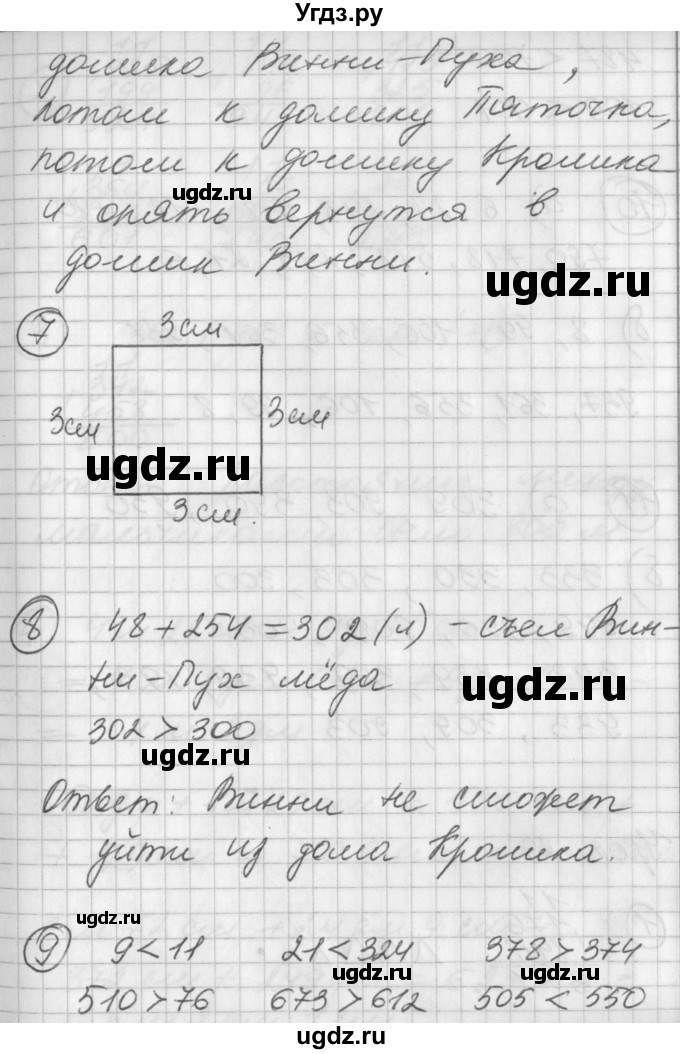 Угдз.ру
домика Винни-Пуха,
потом к домику Пяточка,
потом к домику Кролика
ugdz.ru
и опять вернутся в
домик Винни.
ugdz.ru
7
3 см
3 см
3 см
ugdz.ru
3 см.
8 48 + 254 = 302 (л) - съел Вин-
ни-Пух мёда
ugdz.ru
302 > 300
ugdz.ru
Ответ: Винни не сможет
уйти из дома Кролика.
ugdz.ru
9 9 < 11 21 < 324 378 > 374
ugdz.ru
510 > 76 673 > 612 505 < 550
ugdz.ru